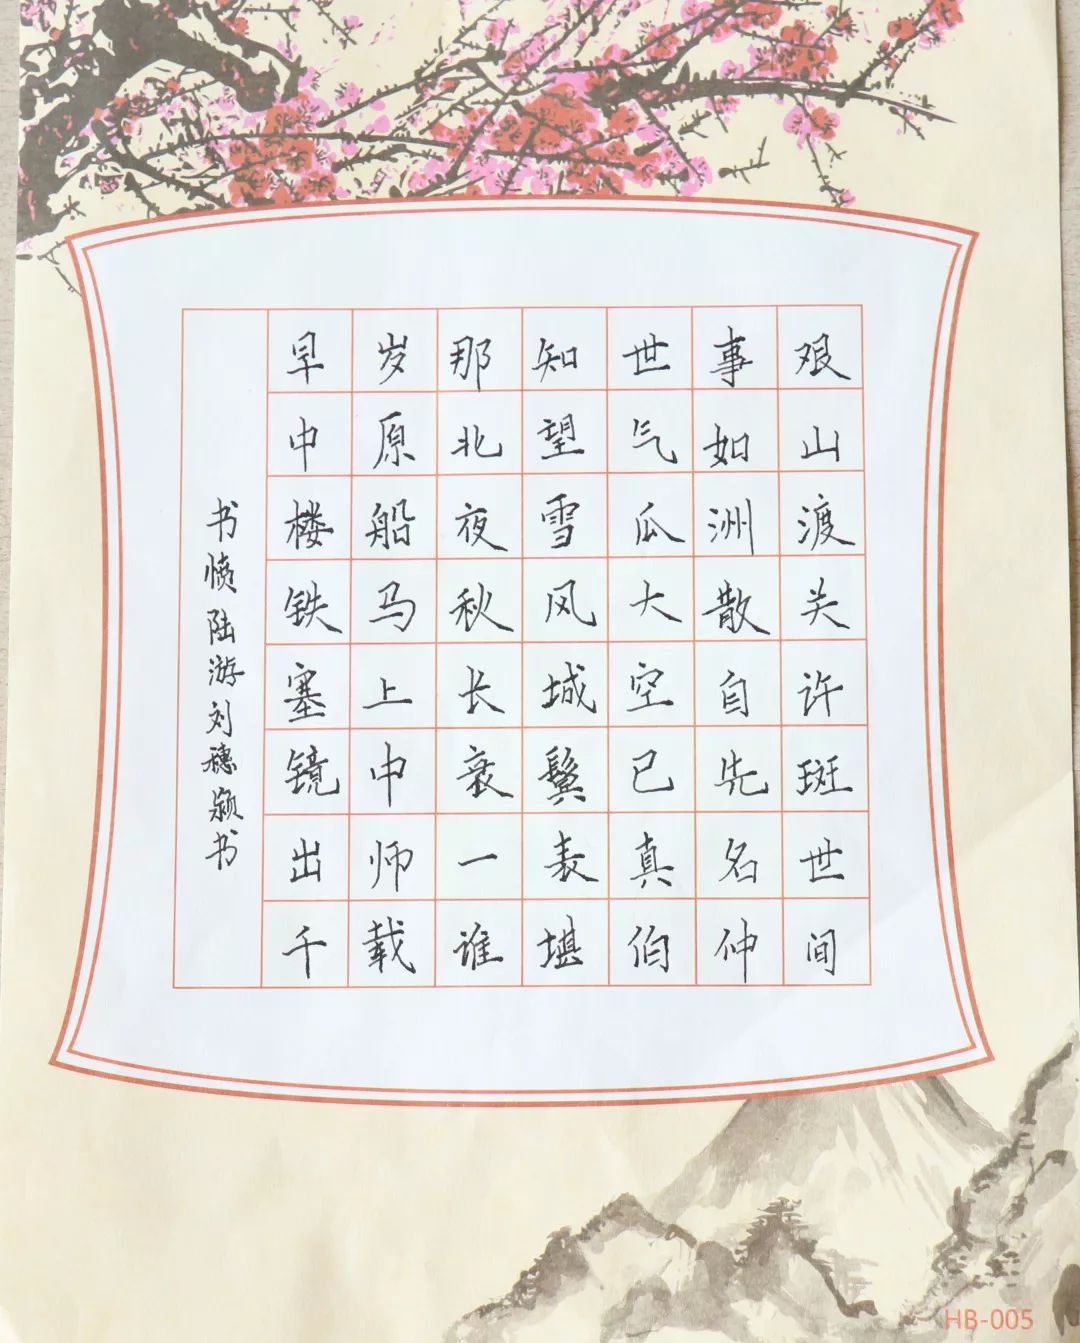 早岁那知世事艰
中原北望气如山
楼船夜雪瓜洲渡
铁马秋风大散关
塞上长城空自许
镜中衰鬓已先斑
出师一表真名世
千载谁堪伯仲间
书愤陆游刘穗颍书
HB-005